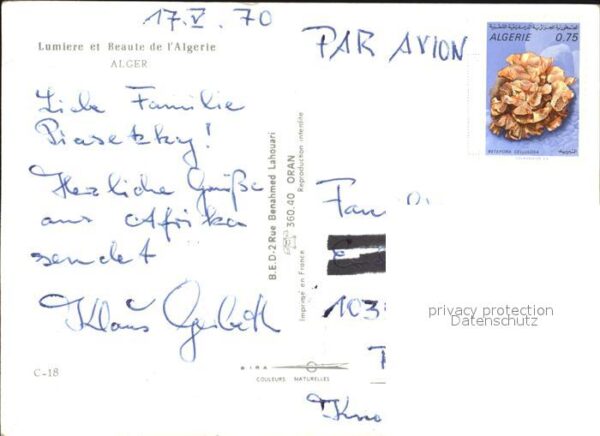 17.V.70
Lumiere et Beaute de l'Algerie
ALGER
PAR AVION
ALGERIE 0.75
RETEPORA CELLULOSA
Liebe Familie
Piasetzky!
Herzliche Grüße
aus Afrika
sendet
Klaus
C-18
B.E.D-2.Rue Benahmed Lahouari
360.40 ORAN
Imprimé en France
Reproduction interdite
COULEURS NATURELLES
Fam
103
privacy protection
Datenschutz